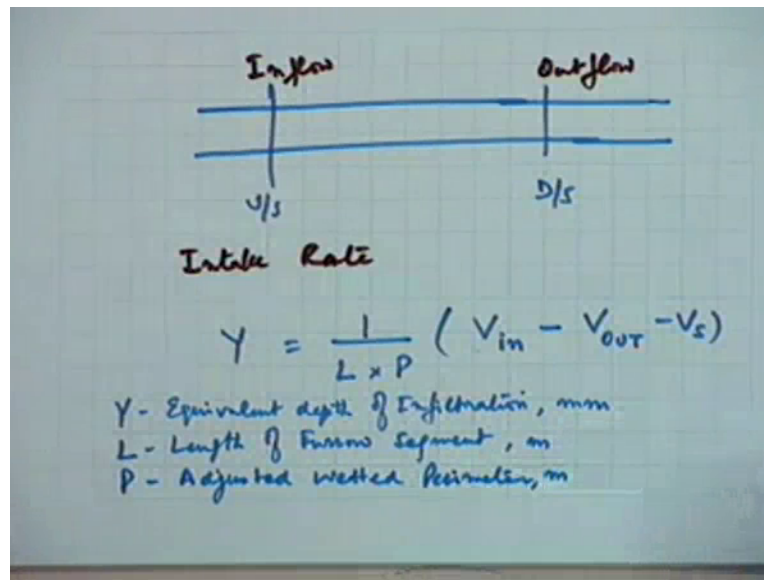 Inflow Outflow
U/S D/S
Intake Rate
Y = 1 / L × P ( Vin - VOUT - VS)
Y - Equivalent depth of Infiltration, mm
L - Length of Furrow Segment, m
P - Adjusted wetted Perimeter, m